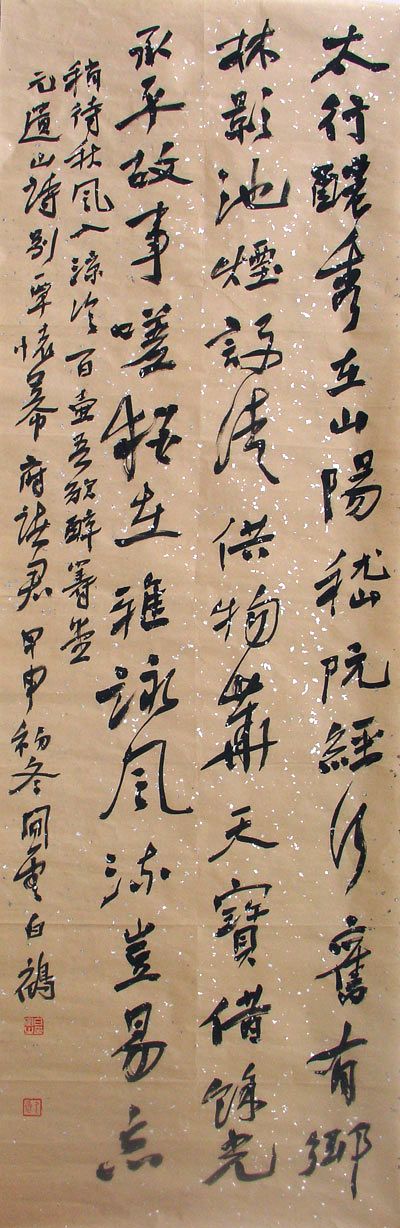 太行醲秀在山陽嵇阮經行舊有鄉
林影池煙設清供物華天寶借餘光
承平故事嗟猶在雅詠風流豈易忘
稍待秋風入涼冷百壺吾欲醉籌
元遺山詩別覃懷幕府諸君甲申初冬